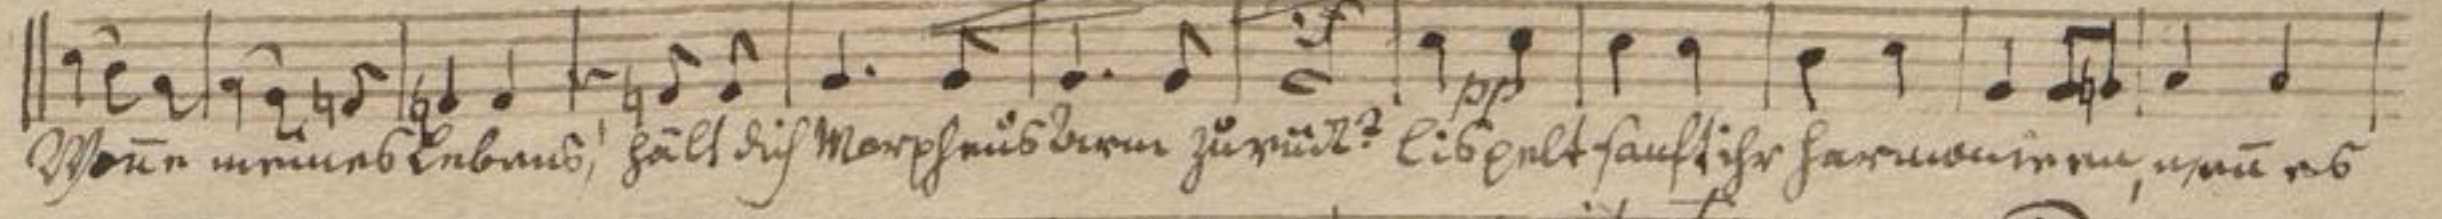 f
pp
Won̄e meines Lebens, hält dich Morpheus Arm zurück? Lispelt sanft ihr Harmonieen, wen̄ es